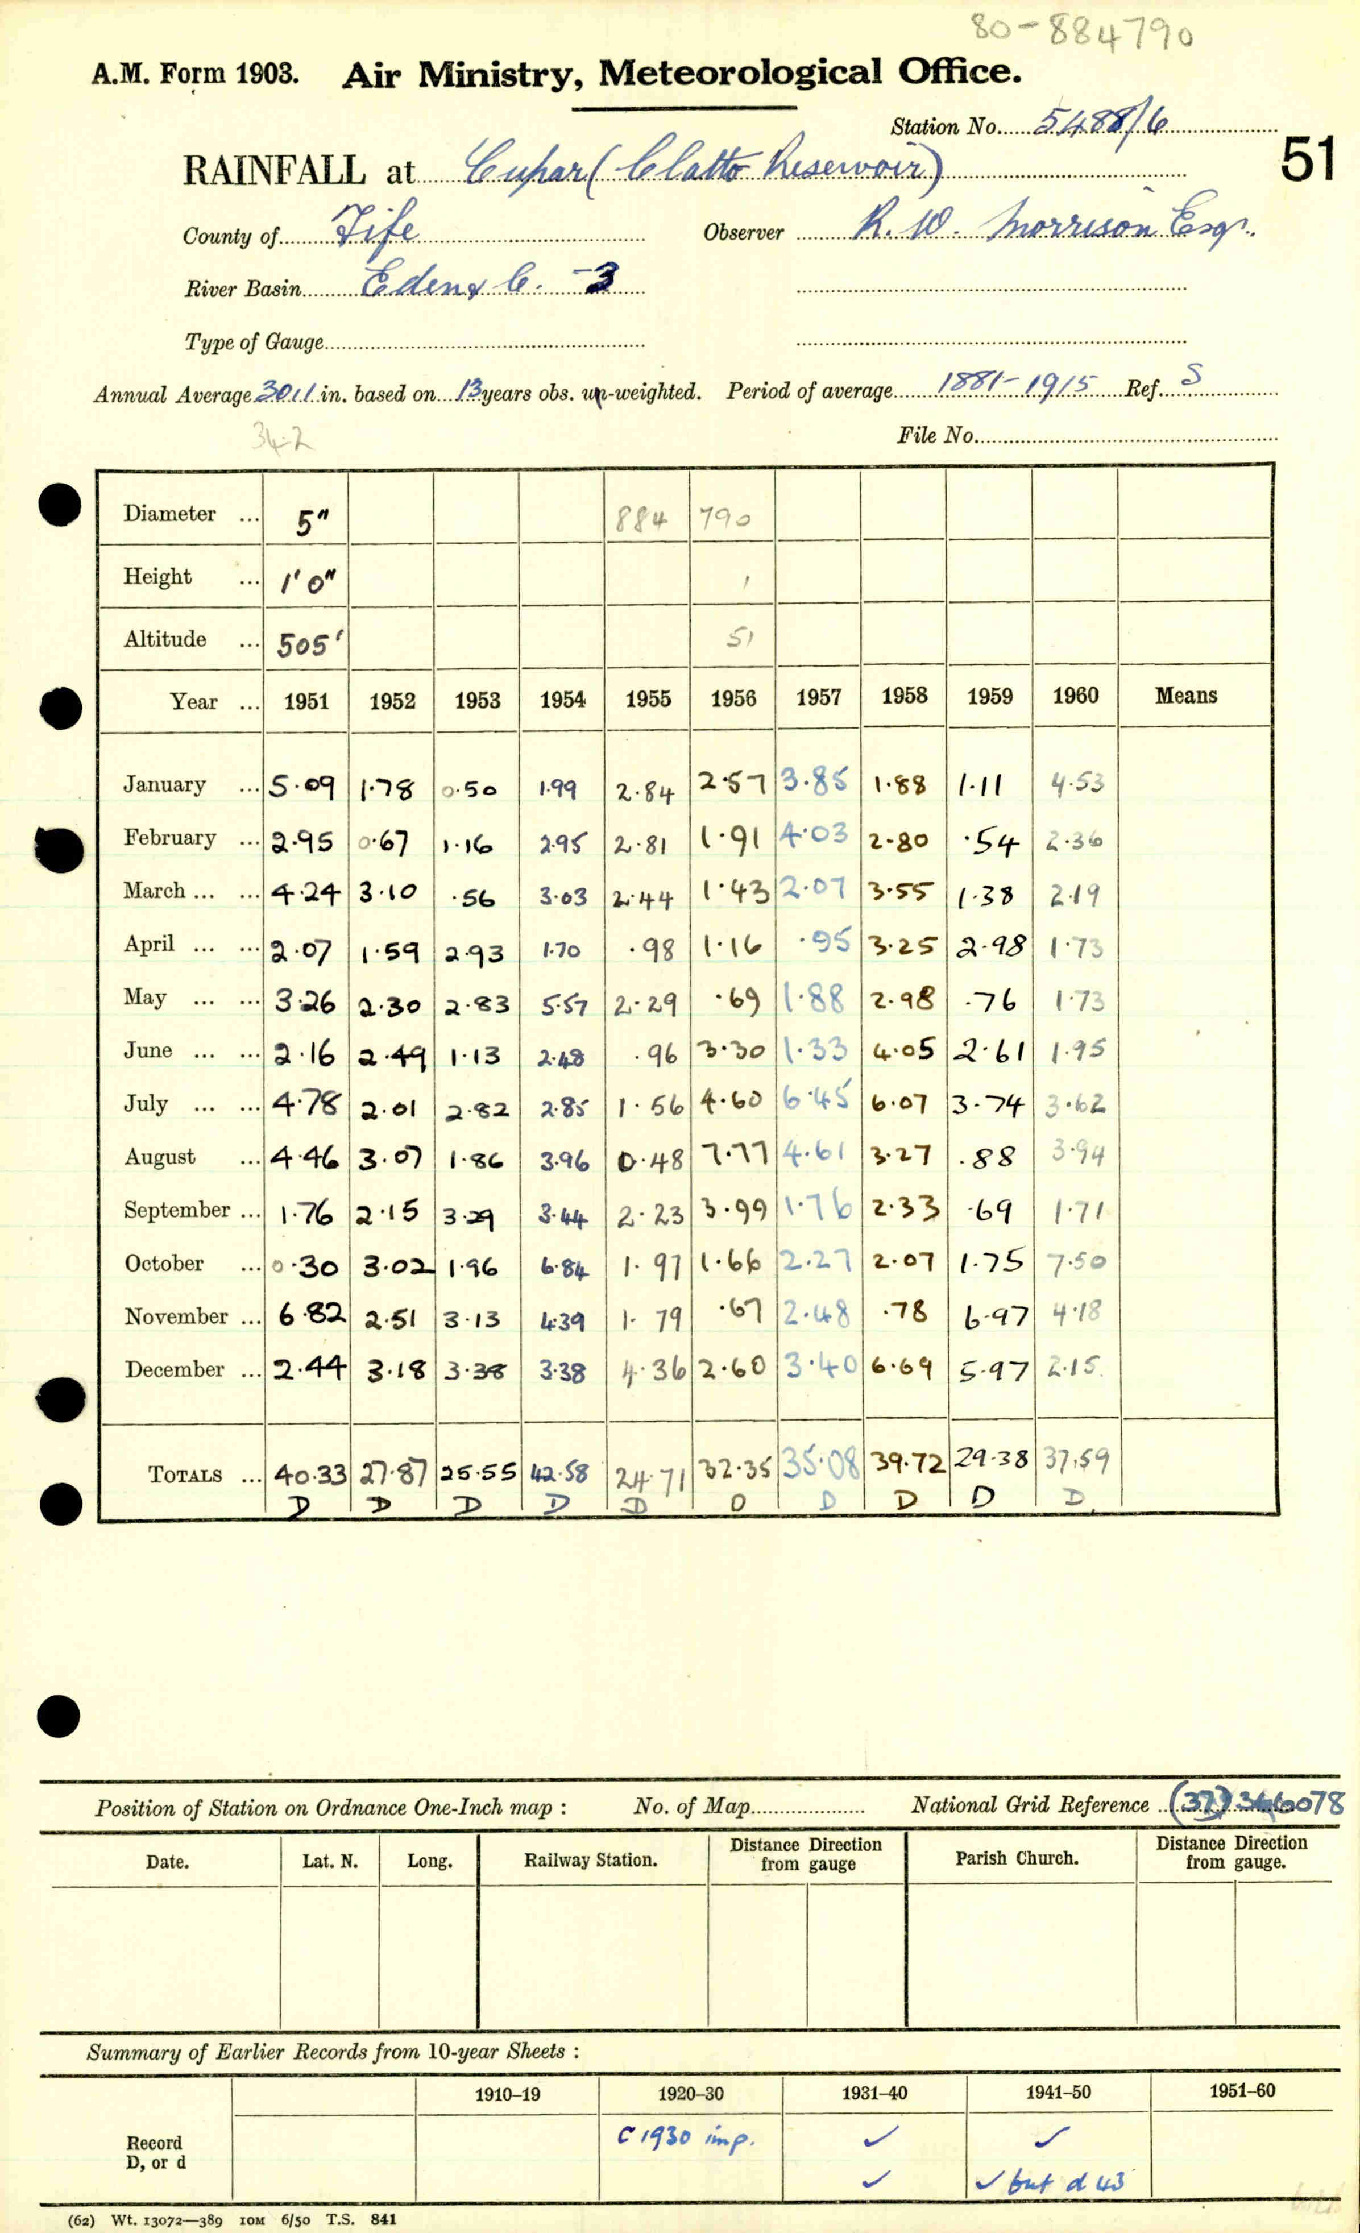 80-884790
A.M. Form 1903. Air Ministry, Meteorological Office.
Station No. 5488/6
51
RAINFALL at Cupar (Clatto Reservoir)
County of Fife Observer R. W. Morrison Esqr.
River Basin Eden & C. -3
Type of Gauge
Annual Average 30.1 in. based on 13 years obs. un-weighted. Period of average 1881-1915 Ref. S
34.2
File No.
Diameter ... 5" 884 790
Height ... 1' 0" 1
Altitude ... 505' 51
Year ... 1951 1952 1953 1954 1955 1956 1957 1958 1959 1960 Means
January ... 5.09 1.78 0.50 1.99 2.84 2.57 3.85 1.88 1.11 4.53
February ... 2.95 0.67 1.16 2.95 2.81 1.91 4.03 2.80 .54 2.36
March ... ... 4.24 3.10 .56 3.03 2.44 1.43 2.07 3.55 1.38 2.19
April ... ... 2.07 1.59 2.93 1.70 .98 1.16 .95 3.25 2.98 1.73
May ... ... 3.26 2.30 2.83 5.57 2.29 .69 1.88 2.98 .76 1.73
June ... ... 2.16 2.49 1.13 2.48 .96 3.30 1.33 4.05 2.61 1.95
July ... ... 4.78 2.01 2.82 2.85 1.56 4.60 6.45 6.07 3.74 3.62
August ... 4.46 3.07 1.86 3.96 0.48 7.77 4.61 3.27 .88 3.94
September ... 1.76 2.15 3.29 3.44 2.23 3.99 1.76 2.33 .69 1.71
October ... 0.30 3.02 1.96 6.84 1.97 1.66 2.27 2.07 1.75 7.50
November ... 6.82 2.51 3.13 4.39 1.79 .67 2.48 .78 6.97 4.18
December ... 2.44 3.18 3.38 3.38 4.36 2.60 3.40 6.69 5.97 2.15
TOTALS ... 40.33 27.87 25.55 42.58 24.71 32.35 35.08 39.72 29.38 37.59
D D D D D D D D D D
Position of Station on Ordnance One-Inch map : No. of Map National Grid Reference (37) 346078
Date. Lat. N. Long. Railway Station. Distance Direction from gauge Parish Church. Distance Direction from gauge.
Summary of Earlier Records from 10-year Sheets :
1910–19 1920–30 1931–40 1941–50 1951–60
Record C 1930 imp. ✓ ✓
D, or d ✓ ✓ but d 43
(62) Wt. 13072—389 10M 6/50 T.S. 841